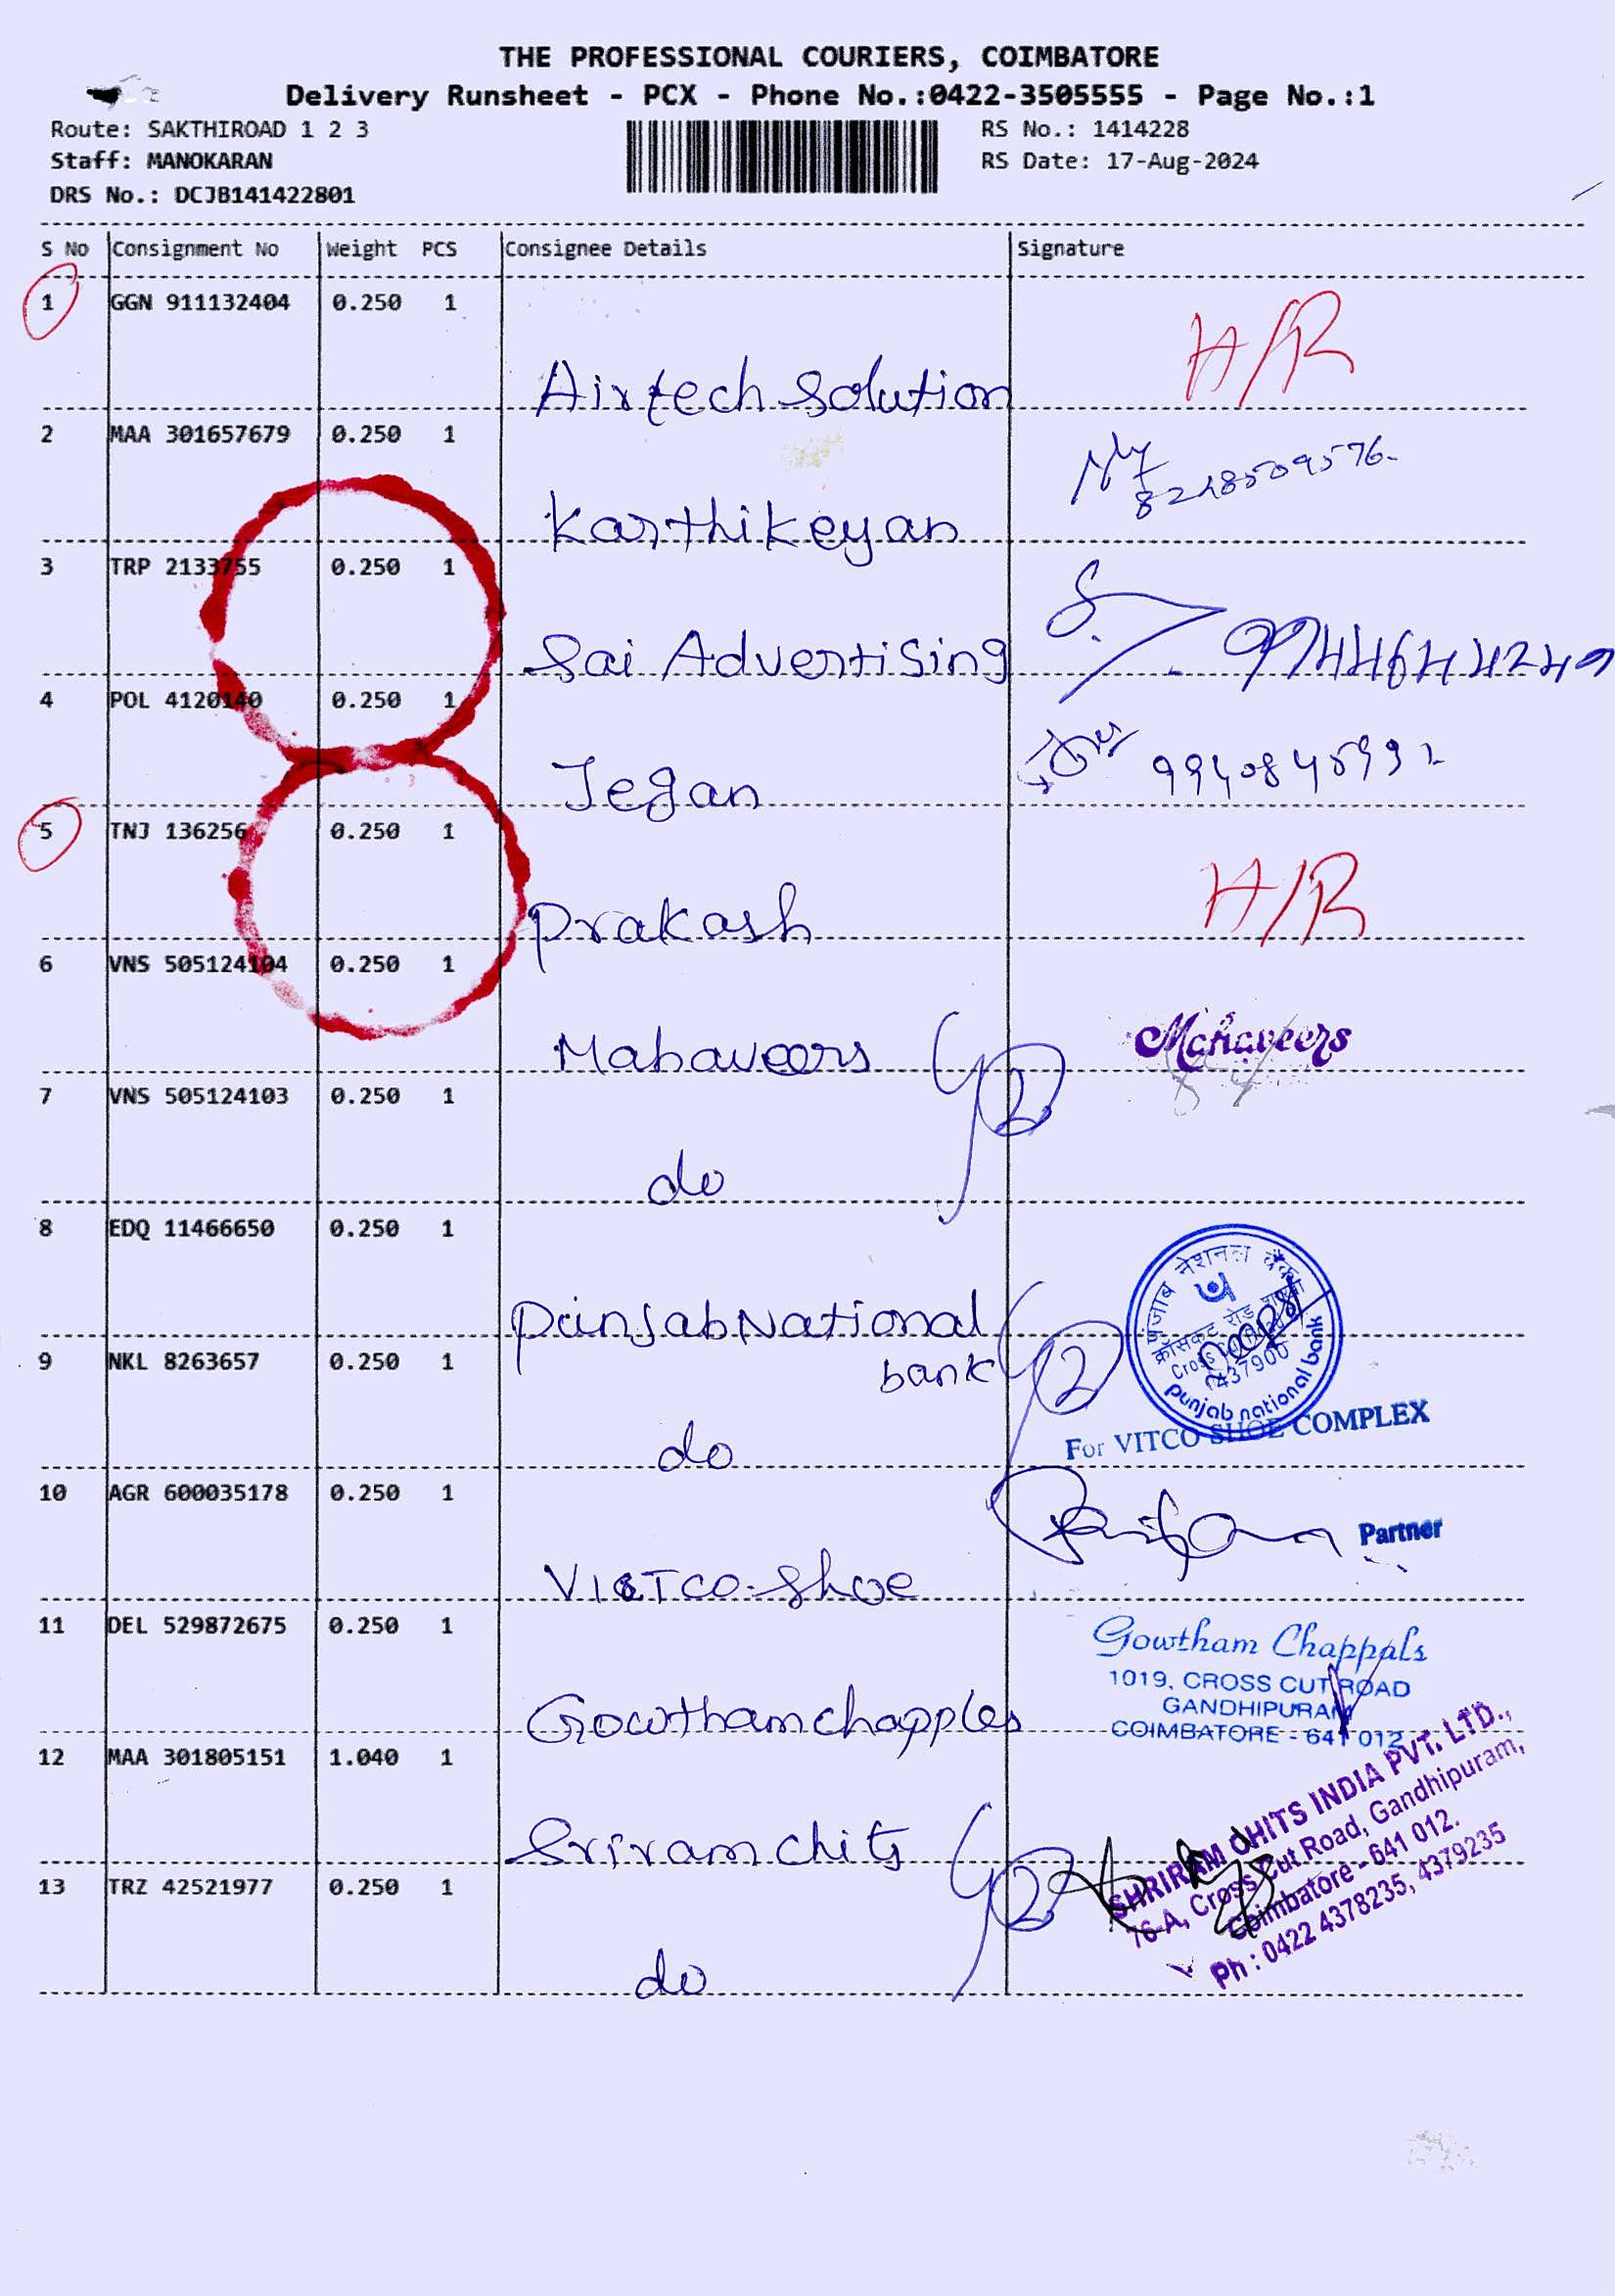 THE PROFESSIONAL COURIERS, COIMBATORE
Delivery Runsheet - PCX - Phone No.:0422-3505555 - Page No.:1
Route: SAKTHIROAD 1 2 3
RS No.: 1414228
Staff: MANOKARAN
RS Date: 17-Aug-2024
DRS No.: DCJB141422801
S No Consignment No Weight PCS Consignee Details Signature
1 GGN 911132404 0.250 1
Airtech Solution H/R
2 MAA 301657679 0.250 1
Karthikeyan
3 TRP 2133755 0.250 1
Sai Advertising
4 POL 4120140 0.250 1
Jegan
5 TNJ 136256 0.250 1
Prakash H/R
6 VNS 505124104 0.250 1
Mahaveers 2 Mahaveers
7 VNS 505124103 0.250 1
do
8 EDQ 11466650 0.250 1
पंजाब नेशनल बैंक
क्रॉसकट रोड
Cross Cut
punjab national bank
Punjab National
bank 2
9 NKL 8263657 0.250 1
do
For VITCO SHOE COMPLEX
10 AGR 600035178 0.250 1
Partner
shoe
11 DEL 529872675 0.250 1
Gowtham Chappals
1019, CROSS CUT ROAD
GANDHIPURAM
COIMBATORE - 641 012
Gowtham chapples
12 MAA 301805151 1.040 1
Sriram chits 2
13 TRZ 42521977 0.250 1
do
SHRIRAM CHITS INDIA PVT. LTD.,
76-A, Cross Cut Road, Gandhipuram,
Coimbatore - 641 012.
Ph : 0422 4378235, 4379235